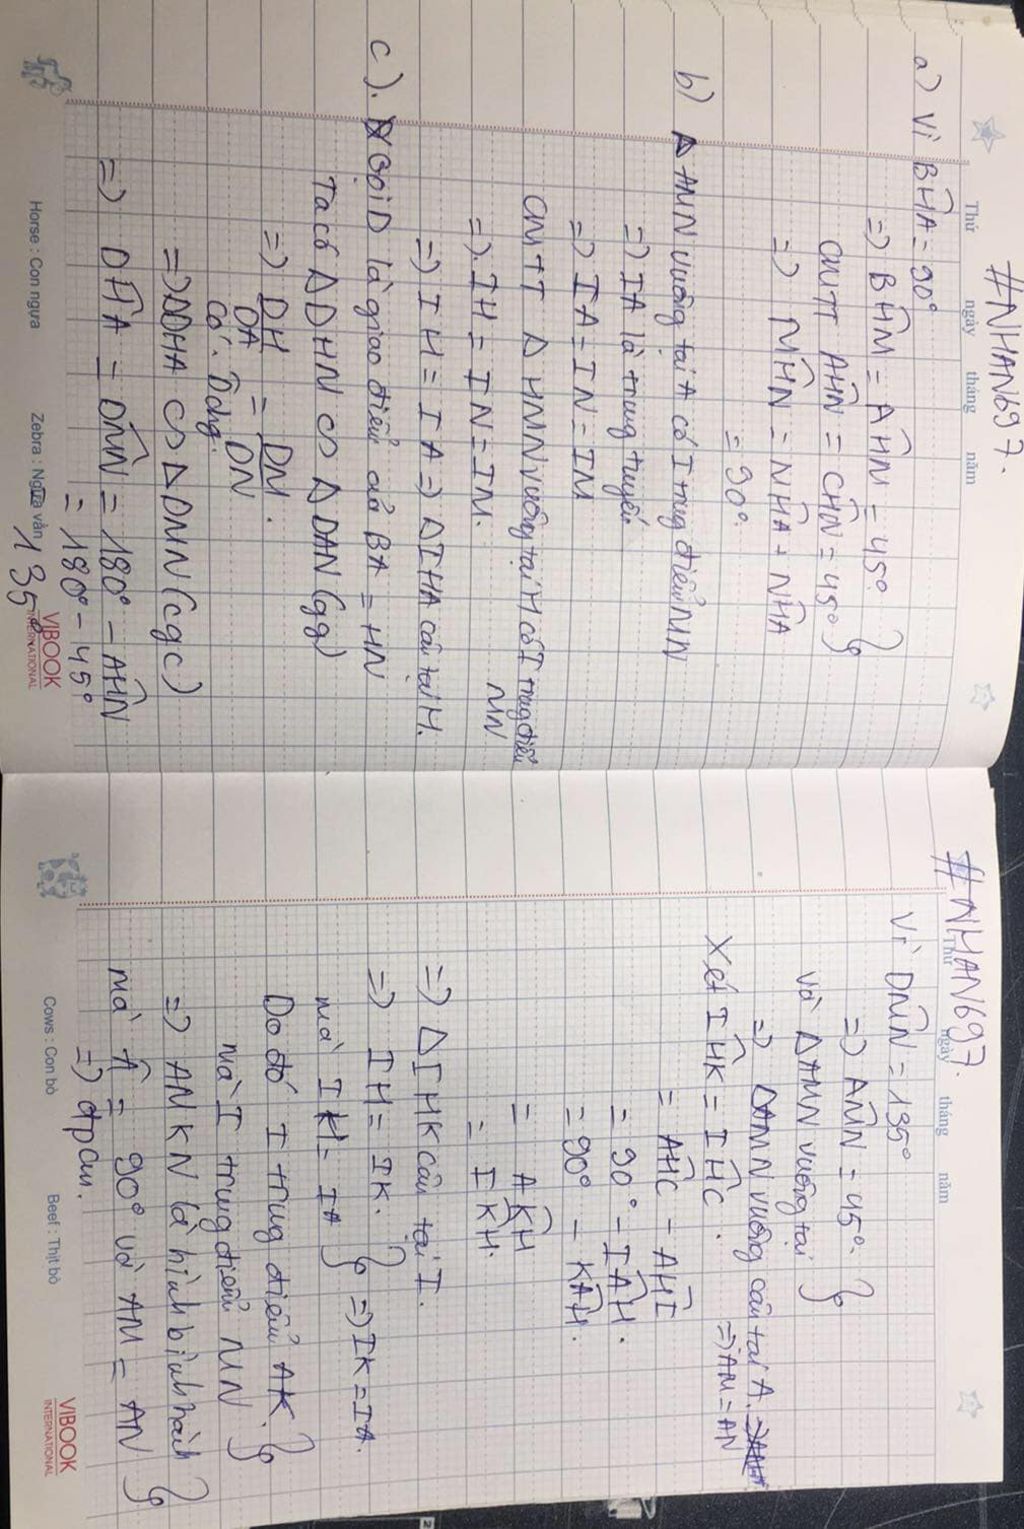 #NHAN697.
Thứ ngày tháng năm
a) Vì BĤA = 90°
=) BĤM = AĤN = 45°
CMTT AĤN = CĤN = 45°
=) MĤN = NĤA + NĤA
= 90°.
b) ΔAMN vuông tại A có I trung điểm MN
=) IA là trung tuyến
=) IA = IN = IM
CMTT Δ HMN vuông tại H có I trung điểm
MN
=). IH = IN = IM.
=) IH = IA =) ΔIHA cân tại H.
c). Gọi D là giao điểm của BA = HN
Ta có ΔDHN ∽ ΔDAN (gg)
=) DH/DA = DM/DN.
có. D̂ chg.
=) ΔDHA ∽ ΔDMN (cgc)
=) DĤA = DM̂N = 180° - AĤN
= 180° - 45°
135°
Horse : Con ngựa
Zebra : Ngựa vằn
VIBOOK
INTERNATIONAL
#NHAN697.
Thứ ngày tháng năm
Vì DM̂N = 135°
=) AM̂N = 45°.
Và ΔAMN vuông tại
=) ΔAMN vuông cân tại A.
=) AM = AN
Xét IĤK = IĤC.
= AĤC - AĤI
= 90° - IÂH.
= 90° - KÂH.
= AK̂H
= IK̂H.
=) ΔIHK cân tại I.
=) IH = IK.
mà IH = IA =) IK = IA.
Do đó I trung điểm AK.
mà I trung điểm MN
=) ANKN là hình bình hành
mà Â = 90° và AM = AN
=) đpcm.
Cows : Con bò
Beef : Thịt bò
VIBOOK
INTERNATIONAL
2